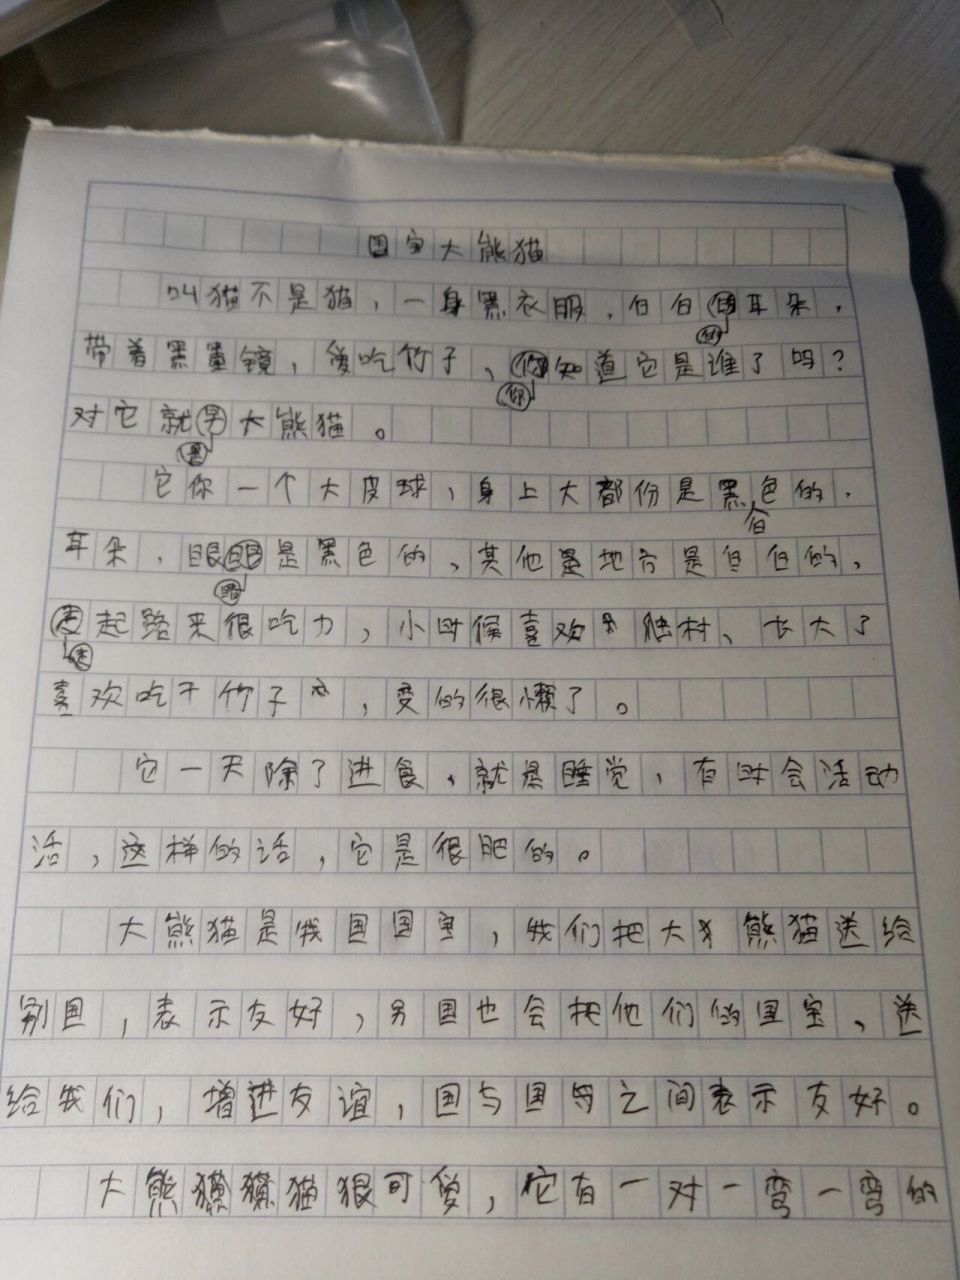 国宝大熊猫
叫猫不是猫，一身黑衣服，白白的耳朵，
带着黑墨镜，爱吃竹子，你知道它是谁了吗？
对它就是大熊猫。
它你一个大皮球，身上大都份是黑白色的，
耳朵，眼睛是黑色的，其他是地方是白白的，
走起路来很吃力，小时候喜欢爬树、长大了
喜欢吃干竹子，变的很懒了。
它一天除了进食，就是睡觉，有时会活动
活，这样的话，它是很肥的。
大熊猫是我国国宝，我们把大熊猫送给
别国，表示友好，另国也会把他们的国宝，送
给我们，增进友谊，国与国与之间表示友好。
大熊猫很可爱，它有一对一弯一弯的